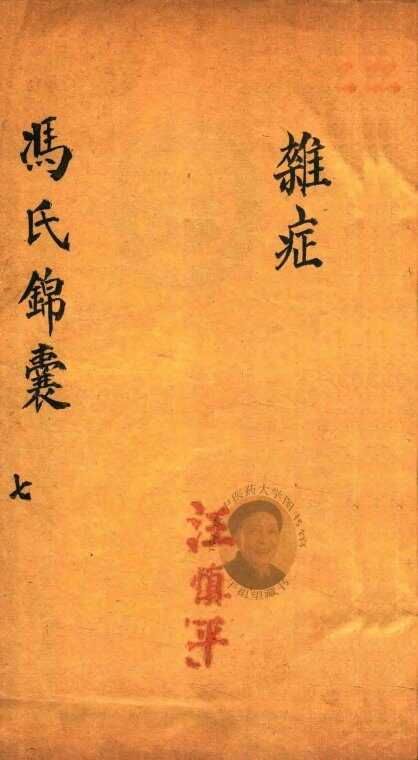 雜症
馮氏錦囊
七
汪慎平
中医药大学图书馆
干祖望藏书